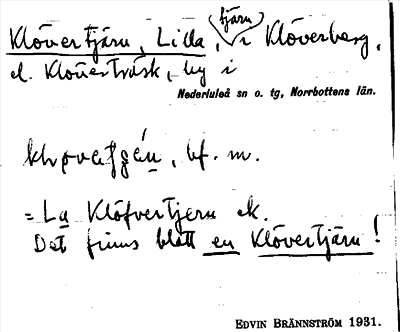 tjärn
Klövertjärn, Lilla, i Klöverberg,
el. Klöverträsk, by i
Nederluleå sn o. tg, Norrbottens län.
bf. m.
= La Klöfvertjern ek.
Det finns blott en Klövertjärn!
EDVIN BRÄNNSTRÖM 1931.